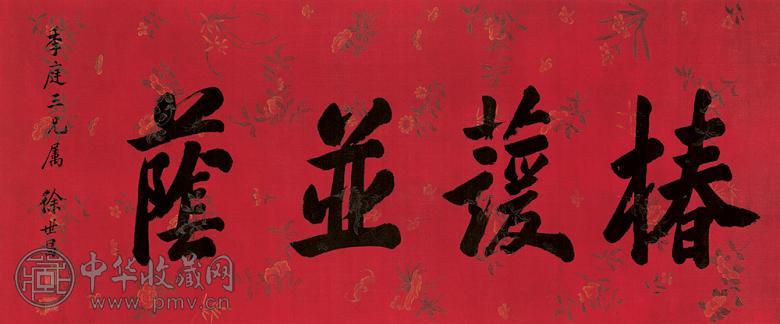 椿蘐並蔭
季庭三兄属 徐世昌
中华收藏网
www.pmv.cn